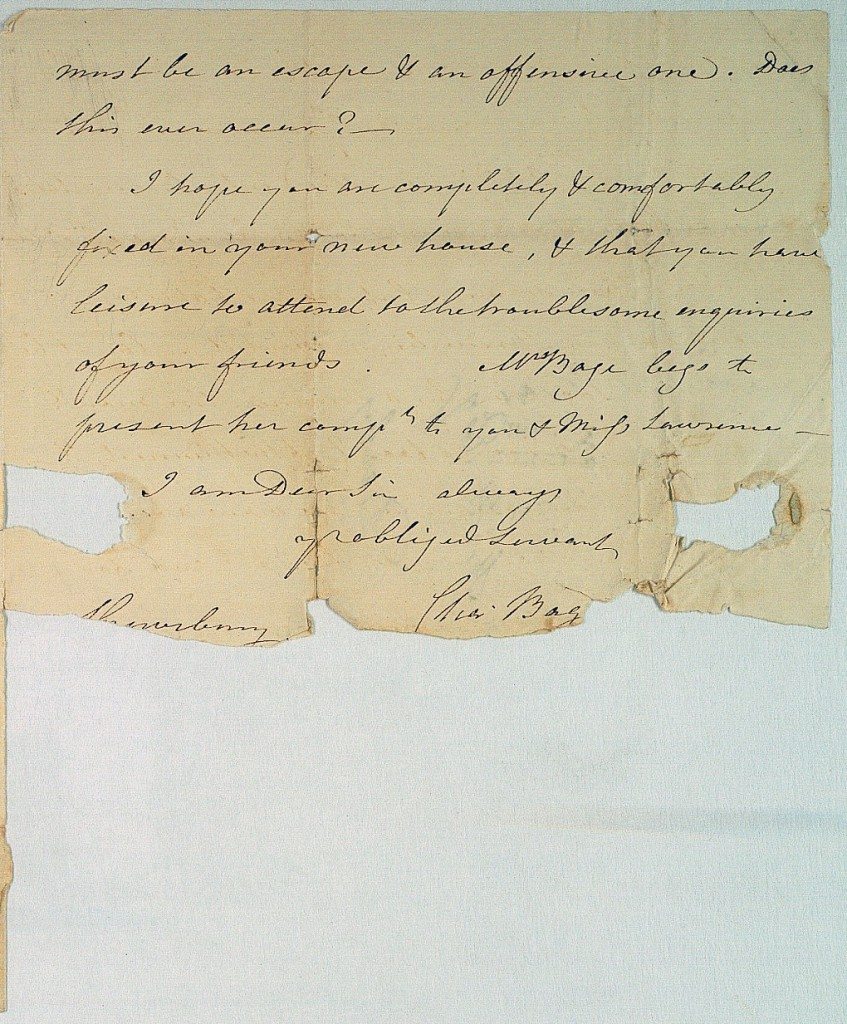 must be an escape & an offensive one. Does
this ever occur? —
I hope you are completely & comfortably
fixed in your new house, & that you have
leisure to attend to the troublesome enquiries
of your friends. Mrs Bage begs to
present her compts to you & Miss Lawrence —
I am Dear Sir always
yr obliged Servant
Chas Bag
Shrewsbury